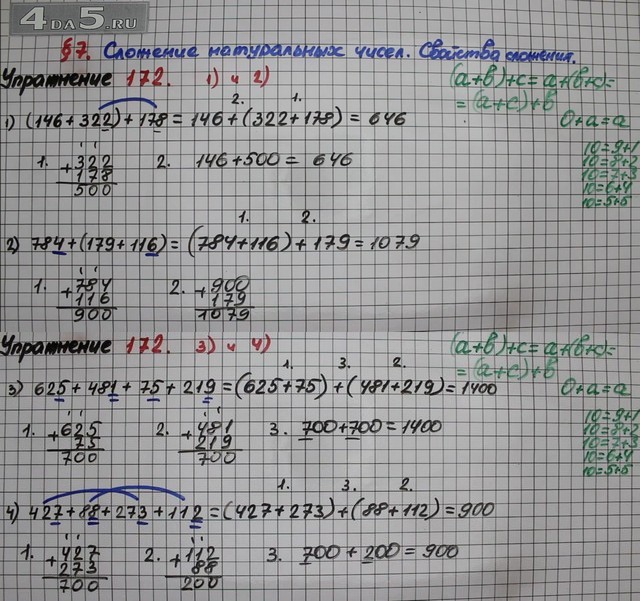 4DA5.RU
§7. Сложение натуральных чисел. Свойства сложения.
Упражнение 172. 1) и 2)
(a+b)+c=a+(b+c)=
=(a+c)+b
0+a=a
10=9+1
10=8+2
10=7+3
10=6+4
10=5+5
2. 1.
1) (146+322)+178=146+(322+178)=646
1. +322
178
500
2. 146+500=646
1. 2.
2) 784+(179+116)=(784+116)+179=1079
1. +784
116
900
2. +900
179
1079
Упражнение 172. 3) и 4)
(a+b)+c=a+(b+c)=
=(a+c)+b
0+a=a
10=9+1
10=8+2
10=7+3
10=6+4
10=5+5
1. 3. 2.
3) 625+481+75+219=(625+75)+(481+219)=1400
1. +625
75
700
2. +481
219
700
3. 700+700=1400
1. 3. 2.
4) 427+88+273+112=(427+273)+(88+112)=900
1. +427
273
700
2. +112
88
200
3. 700+200=900